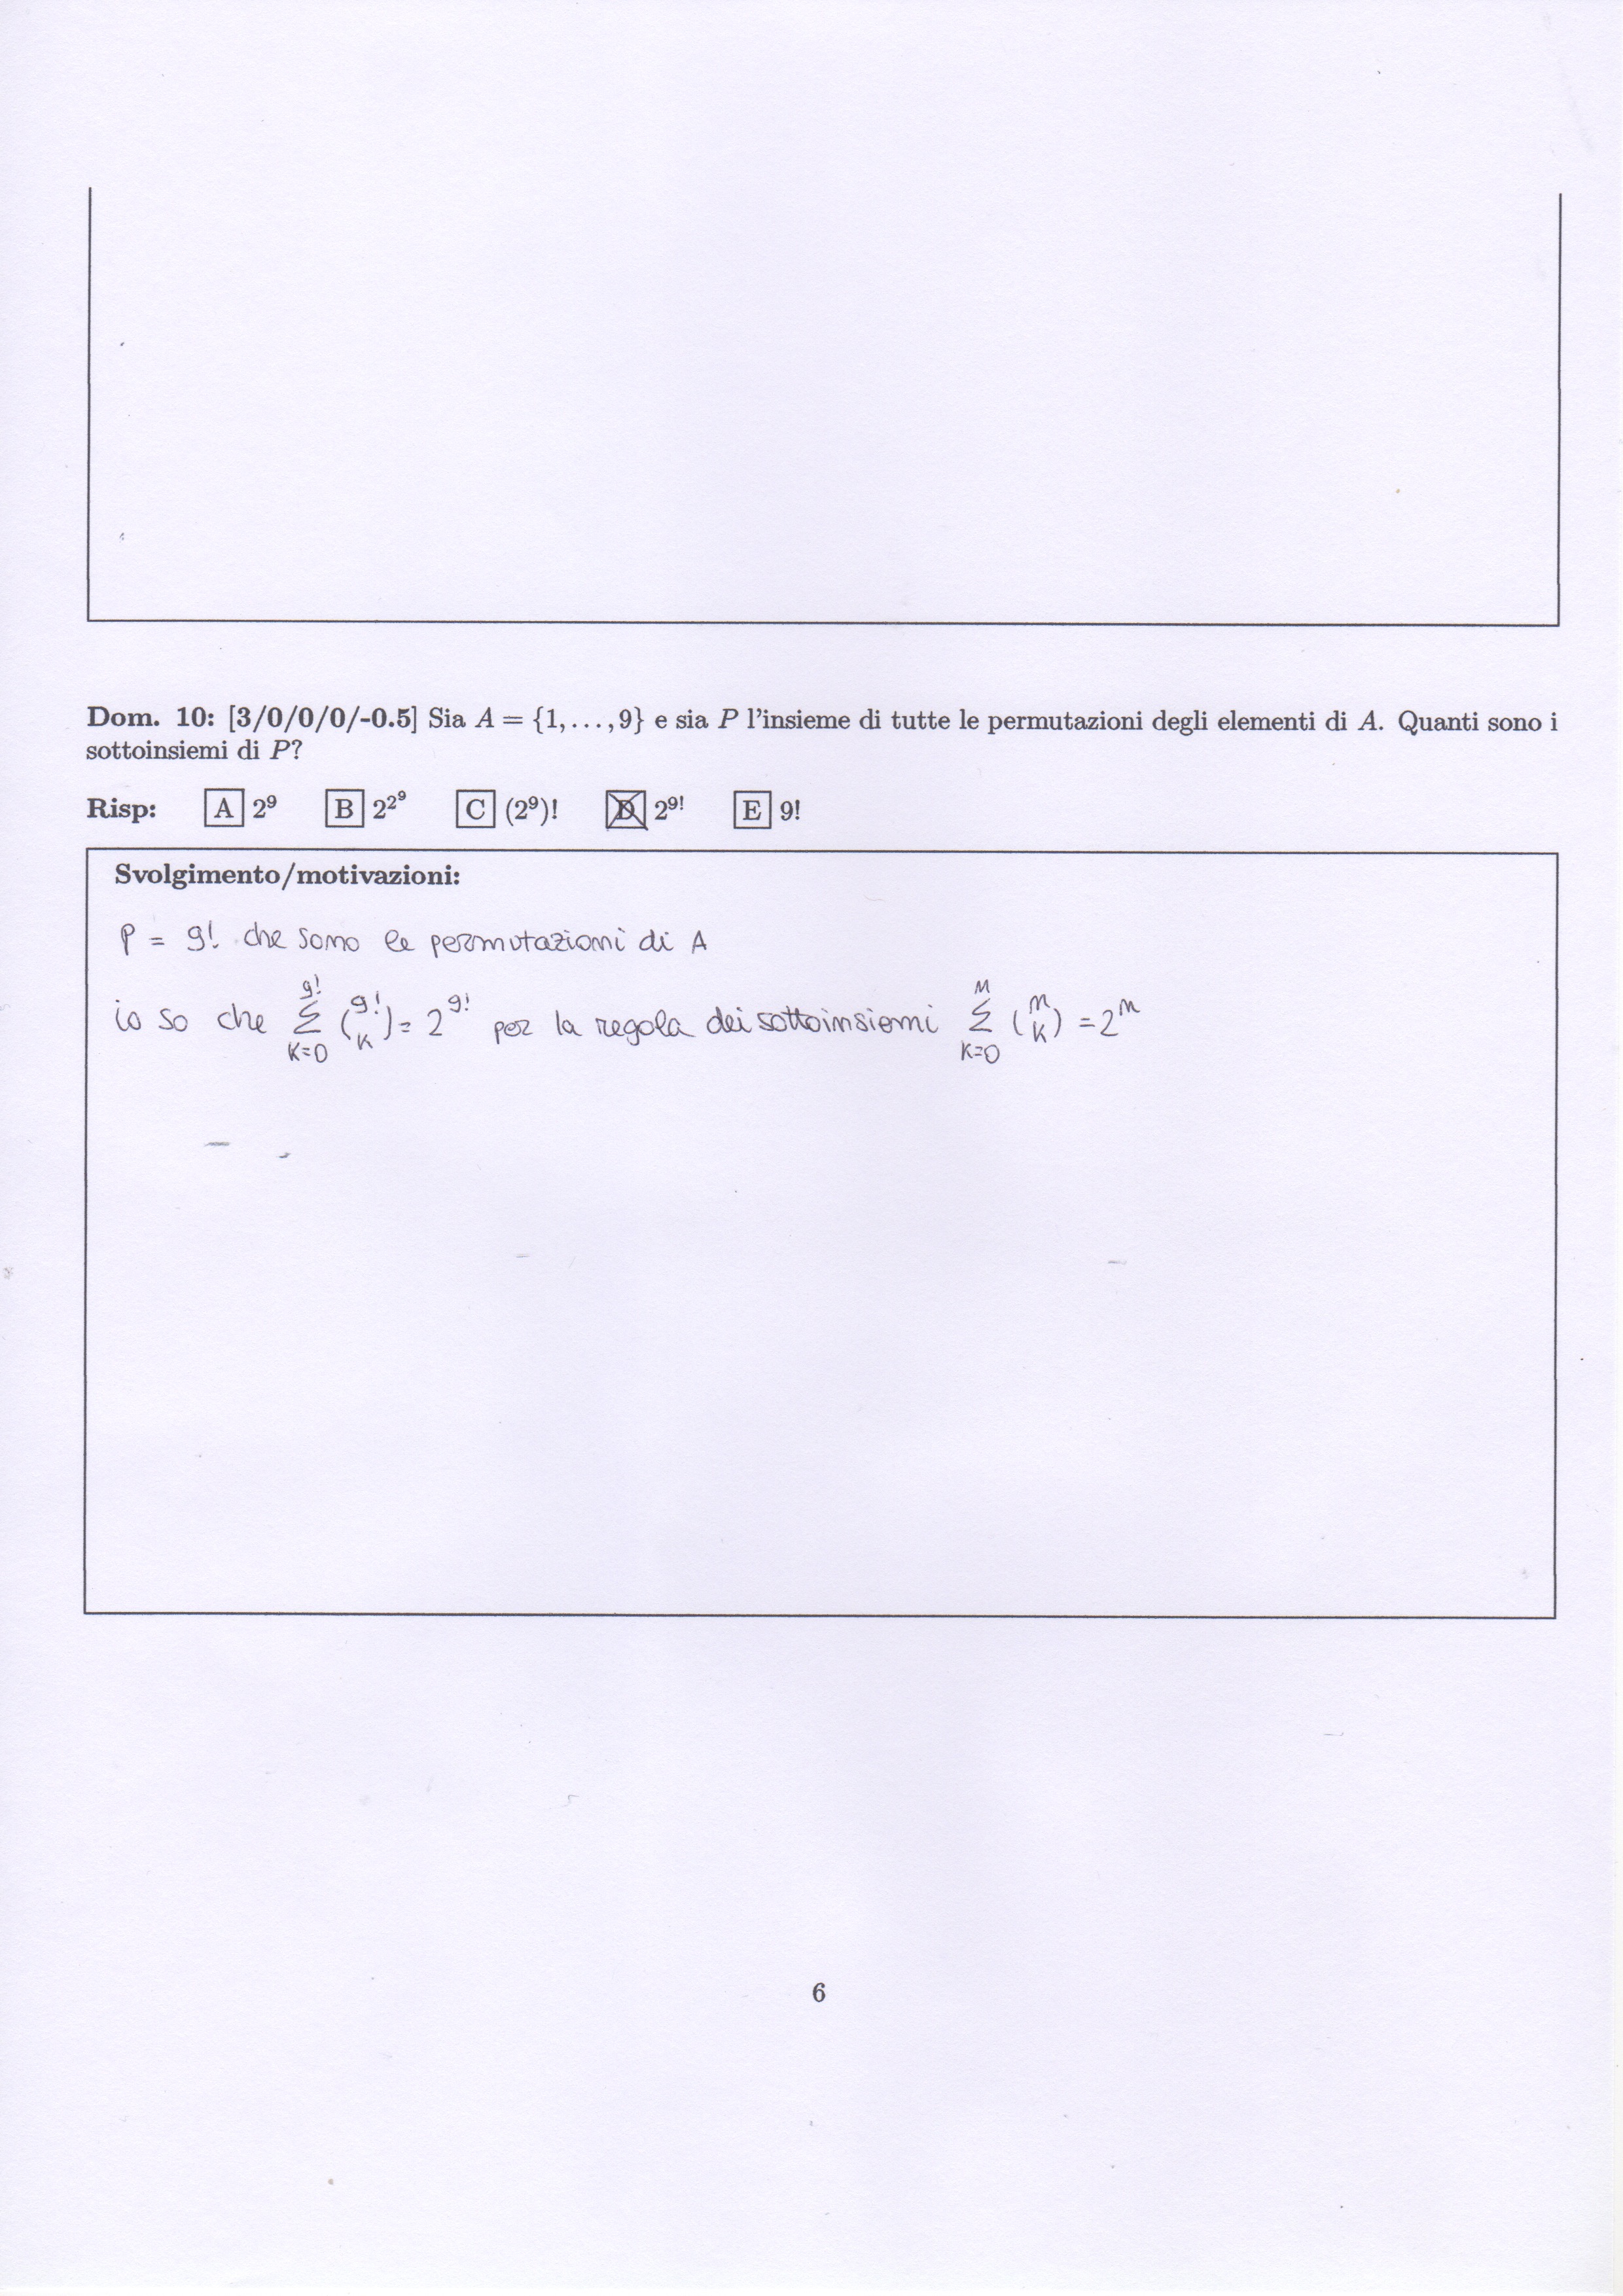 Dom. 10: [3/0/0/0/-0.5] Sia A = {1, . . . , 9} e sia P l'insieme di tutte le permutazioni degli elementi di A. Quanti sono i
sottoinsiemi di P?
Risp: A 2⁹ B 2^2⁹ C (2⁹)! D 2^9! E 9!
Svolgimento/motivazioni:
P = 9! che sono le permutazioni di A
io so che ∑_{K=0}^{9!} (9! K) = 2^{9!} per la regola dei sottoinsiemi ∑_{K=0}^{n} (n K) = 2^n
6